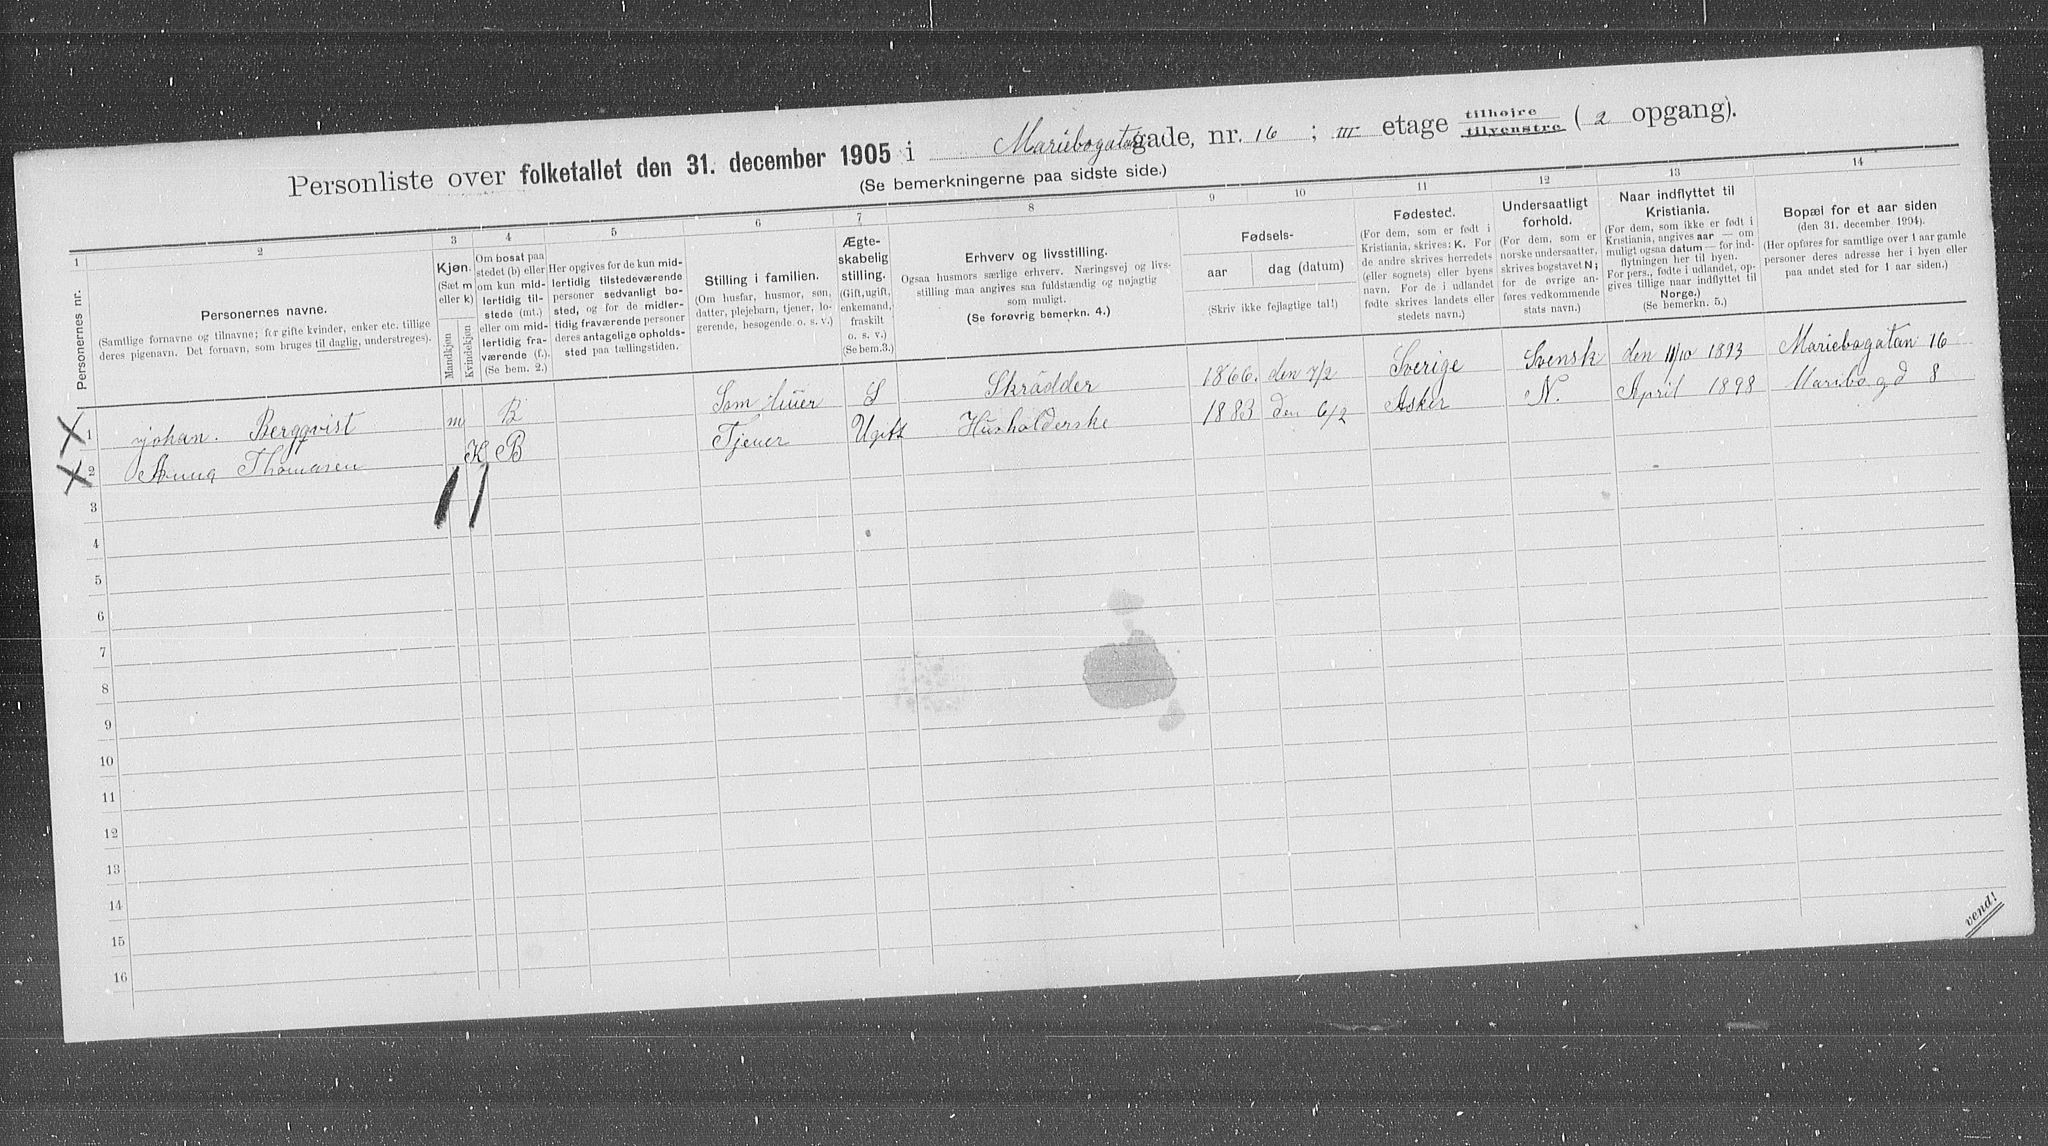 Personliste over folketallet den 31. december 1905 i Mariebogatan gade, nr. 16 ; III etage tilhøjre tilvenstre ( 2 opgang).
(Se bemerkningerne paa sidste side.)
1 2 3 4 5 6 7 8 9 10 11 12 13 14
Personernes nr.
Personernes navne.
(Samtlige fornavne og tilnavne; for gifte kvinder, enker etc. tillige
deres pigenavn. Det fornavn, som bruges til daglig, understreges).
Kjøn.
(Sæt m
eller k)
Mandkjøn
Kvindekjøn
Om bosat paa
stedet (b) eller
om kun mid-
lertidig til-
stede (mt.)
eller om mid-
lertidig fra-
værende (f.)
(Se bem. 2.)
Her opgives for de kun mid-
lertidig tilstedeværende
personer sedvanligt bo-
sted, og for de midler-
tidig fraværende personer
deres antagelige opholds-
sted paa tællingstiden.
Stilling i familien.
(Om husfar, husmor, søn,
datter, plejebarn, tjener, lo-
gerende, besøgende o. s. v.)
Ægte-
skabelig
stilling.
(Gift, ugift,
enkemand,
fraskilt
o. s. v.)
(Se bem.3.)
Erhverv og livsstilling.
Ogsaa husmors særlige erhverv. Næringsvej og livs-
stilling maa angives saa fuldstændig og nøjagtig
som muligt.
(Se forøvrig bemerkn. 4.)
Fødsels-
aar dag (datum)
(Skriv ikke fejlagtige tal!)
Fødested.
(For dem, som er født i
Kristiania, skrives: K. For
de andre skrives herredets
(eller sognets) eller byens
navn. For de i udlandet
fødte skrives landets eller
stedets navn.)
Undersaatligt
forhold.
(For dem, som er
norske undersaatter,
skrives bogstavet N;
for de øvrige an-
føres vedkommende
stats navn.)
Naar indflyttet til
Kristiania.
(For dem, som ikke er født i
Kristiania, angives aar — om
muligt ogsaa datum — for ind-
flytningen her til byen.
For pers., fødte i udlandet, op-
gives tillige naar indflyttet til
Norge.)
(Se bemerkn. 5.)
Bopæl for et aar siden
(den 31. december 1904).
(Her opføres for samtlige over 1 aar gamle
personer deres adresse her i byen eller
paa andet sted for 1 aar siden.)
1 Johan. Bergqvist m B Skrädder 1866. den 7/2 Sverige Svensk den 11/10 1893 Mariebogatan 16
2 Anna Thomasen K B Tjener Ugift Husholderske 1883 den 6/2 Asker N. April 1898 Maribo gd 8
3
4
5
6
7
8
9
10
11
12
13
14
15
16
vend!